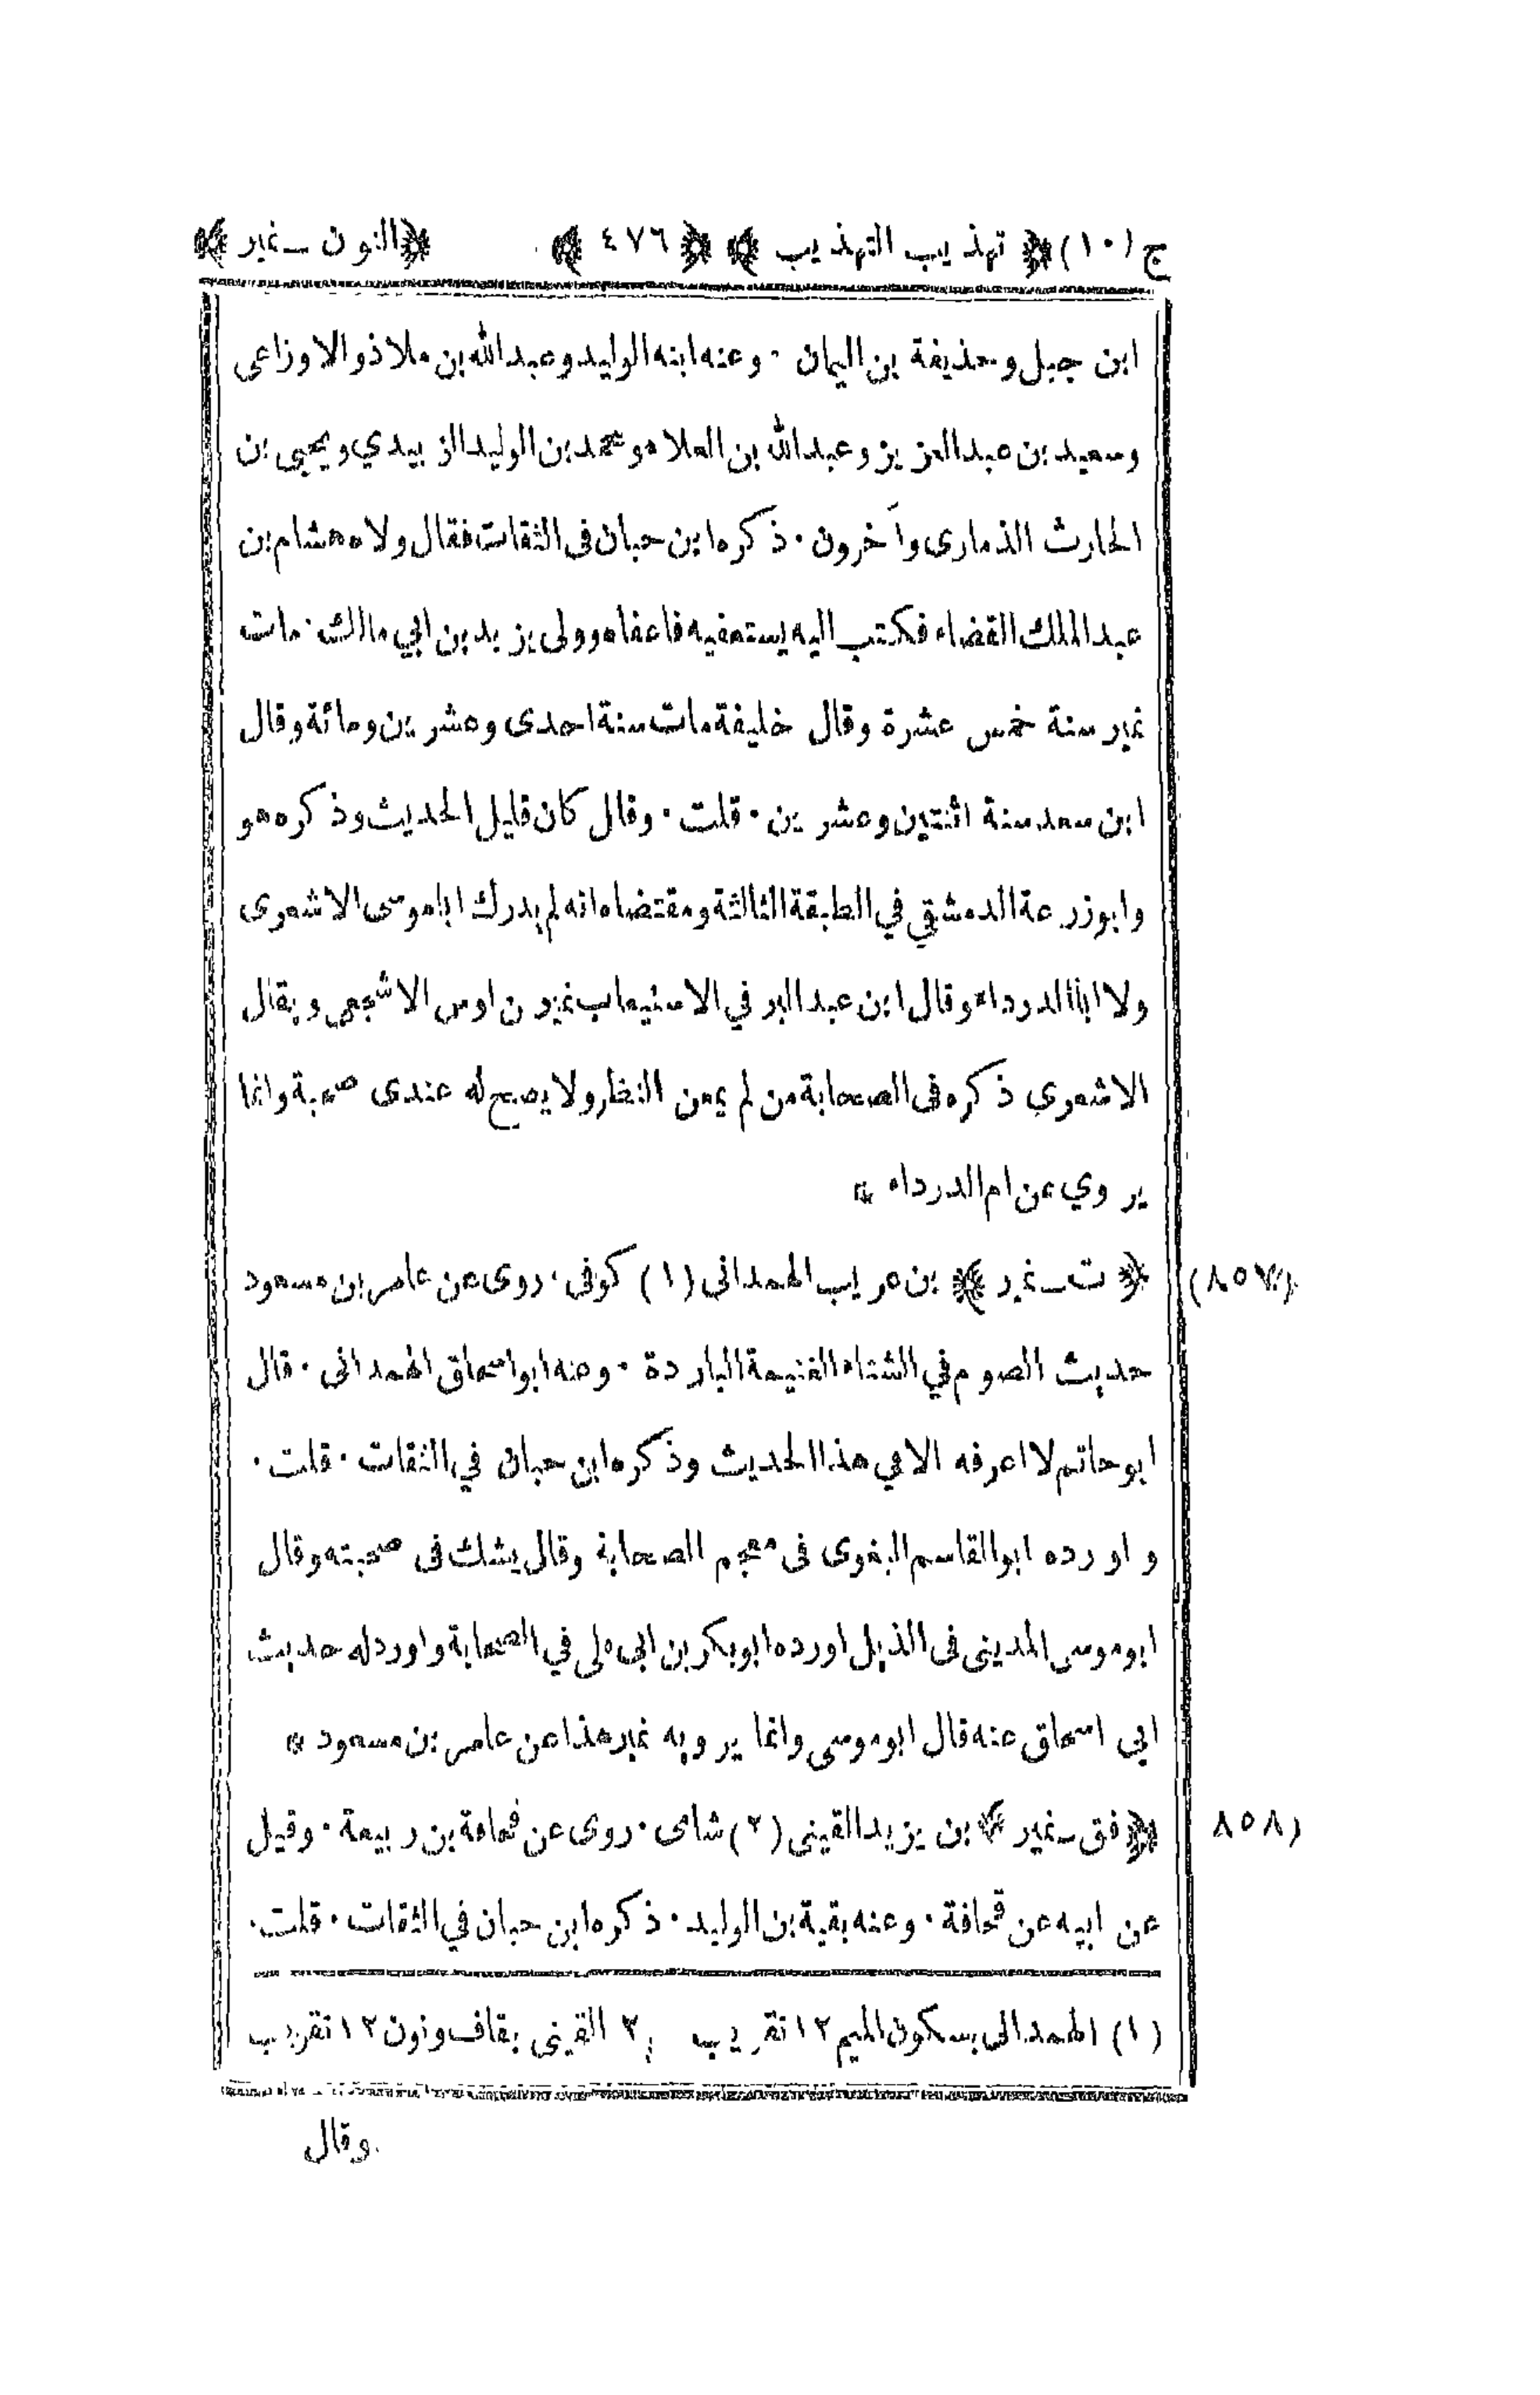 ج (١٠) ﴿ تهذيب التهذيب ﴾ ﴿ ٤٧٦ ﴾ ﴿ النون ـ نمير ﴾
ابن جبل وحذيفة بن اليمان · وعنه ابنه الوليد وعبدالله بن ملاذ والاوزاعى
وسعيد بن عبدالعزيز وعبدالله بن العلاء ومحمد بن الوليد الزبيدي ويحيى بن
الحارث الذمارى وآخرون · ذكره ابن حبان فى الثقات فقال ولاه هشام بن
عبدالملك القضاء فكتب اليه يستعفيه فاعفاه وولى يزيد بن ابي مالك · مات
نمير سنة خمس عشرة وقال خليفة مات سنة احدى وعشرين ومائة وقال
ابن سعد سنة اثنتين وعشرين · قلت · وقال كان قليل الحديث وذكره هو
وابوزرعة الدمشقي في الطبقة الثالثة ومقتضاه انه لم يدرك اباموسى الاشعرى
ولا اباالدرداء وقال ابن عبدالبر في الاستيعاب نمير بن اوس الاشجعي ويقال
الاشعري ذكره فى الصحابة من لم يمعن النظر ولا يصح له عندى صحبة وانما
يروي عن ام الدرداء *
(٨٥٧) ﴿ ت ـ نمير ﴾ بن عريب الهمدانى (١) كوفى · روى عن عامر بن مسعود
حديث الصوم في الشتاء الغنيمة الباردة · وعنه ابواسحاق الهمدانى · قال
ابوحاتم لا اعرفه الا في هذا الحديث وذكره ابن حبان في الثقات · قلت ·
واورده ابوالقاسم البغوى فى معجم الصحابة وقال يشك فى صحبته وقال
ابوموسى المدينى فى الذيل اورده ابوبكر بن ابى على في الصحابة واورد له حديث
ابي اسحاق عنه قال ابوموسى وانما يرويه نمير هذا عن عامر بن مسعود *
(٨٥٨ ﴿ فق ـ نمير ﴾ بن يزيد القينى (٢) شامى · روى عن قحافة بن ربيعة · وقيل
عن ابيه عن قحافة · وعنه بقية بن الوليد · ذكره ابن حبان في الثقات · قلت ·
(١) الهمدانى بسكون الميم ١٢ تقريب ٢ القينى بقاف ونون ١٢ تقريب
وقال